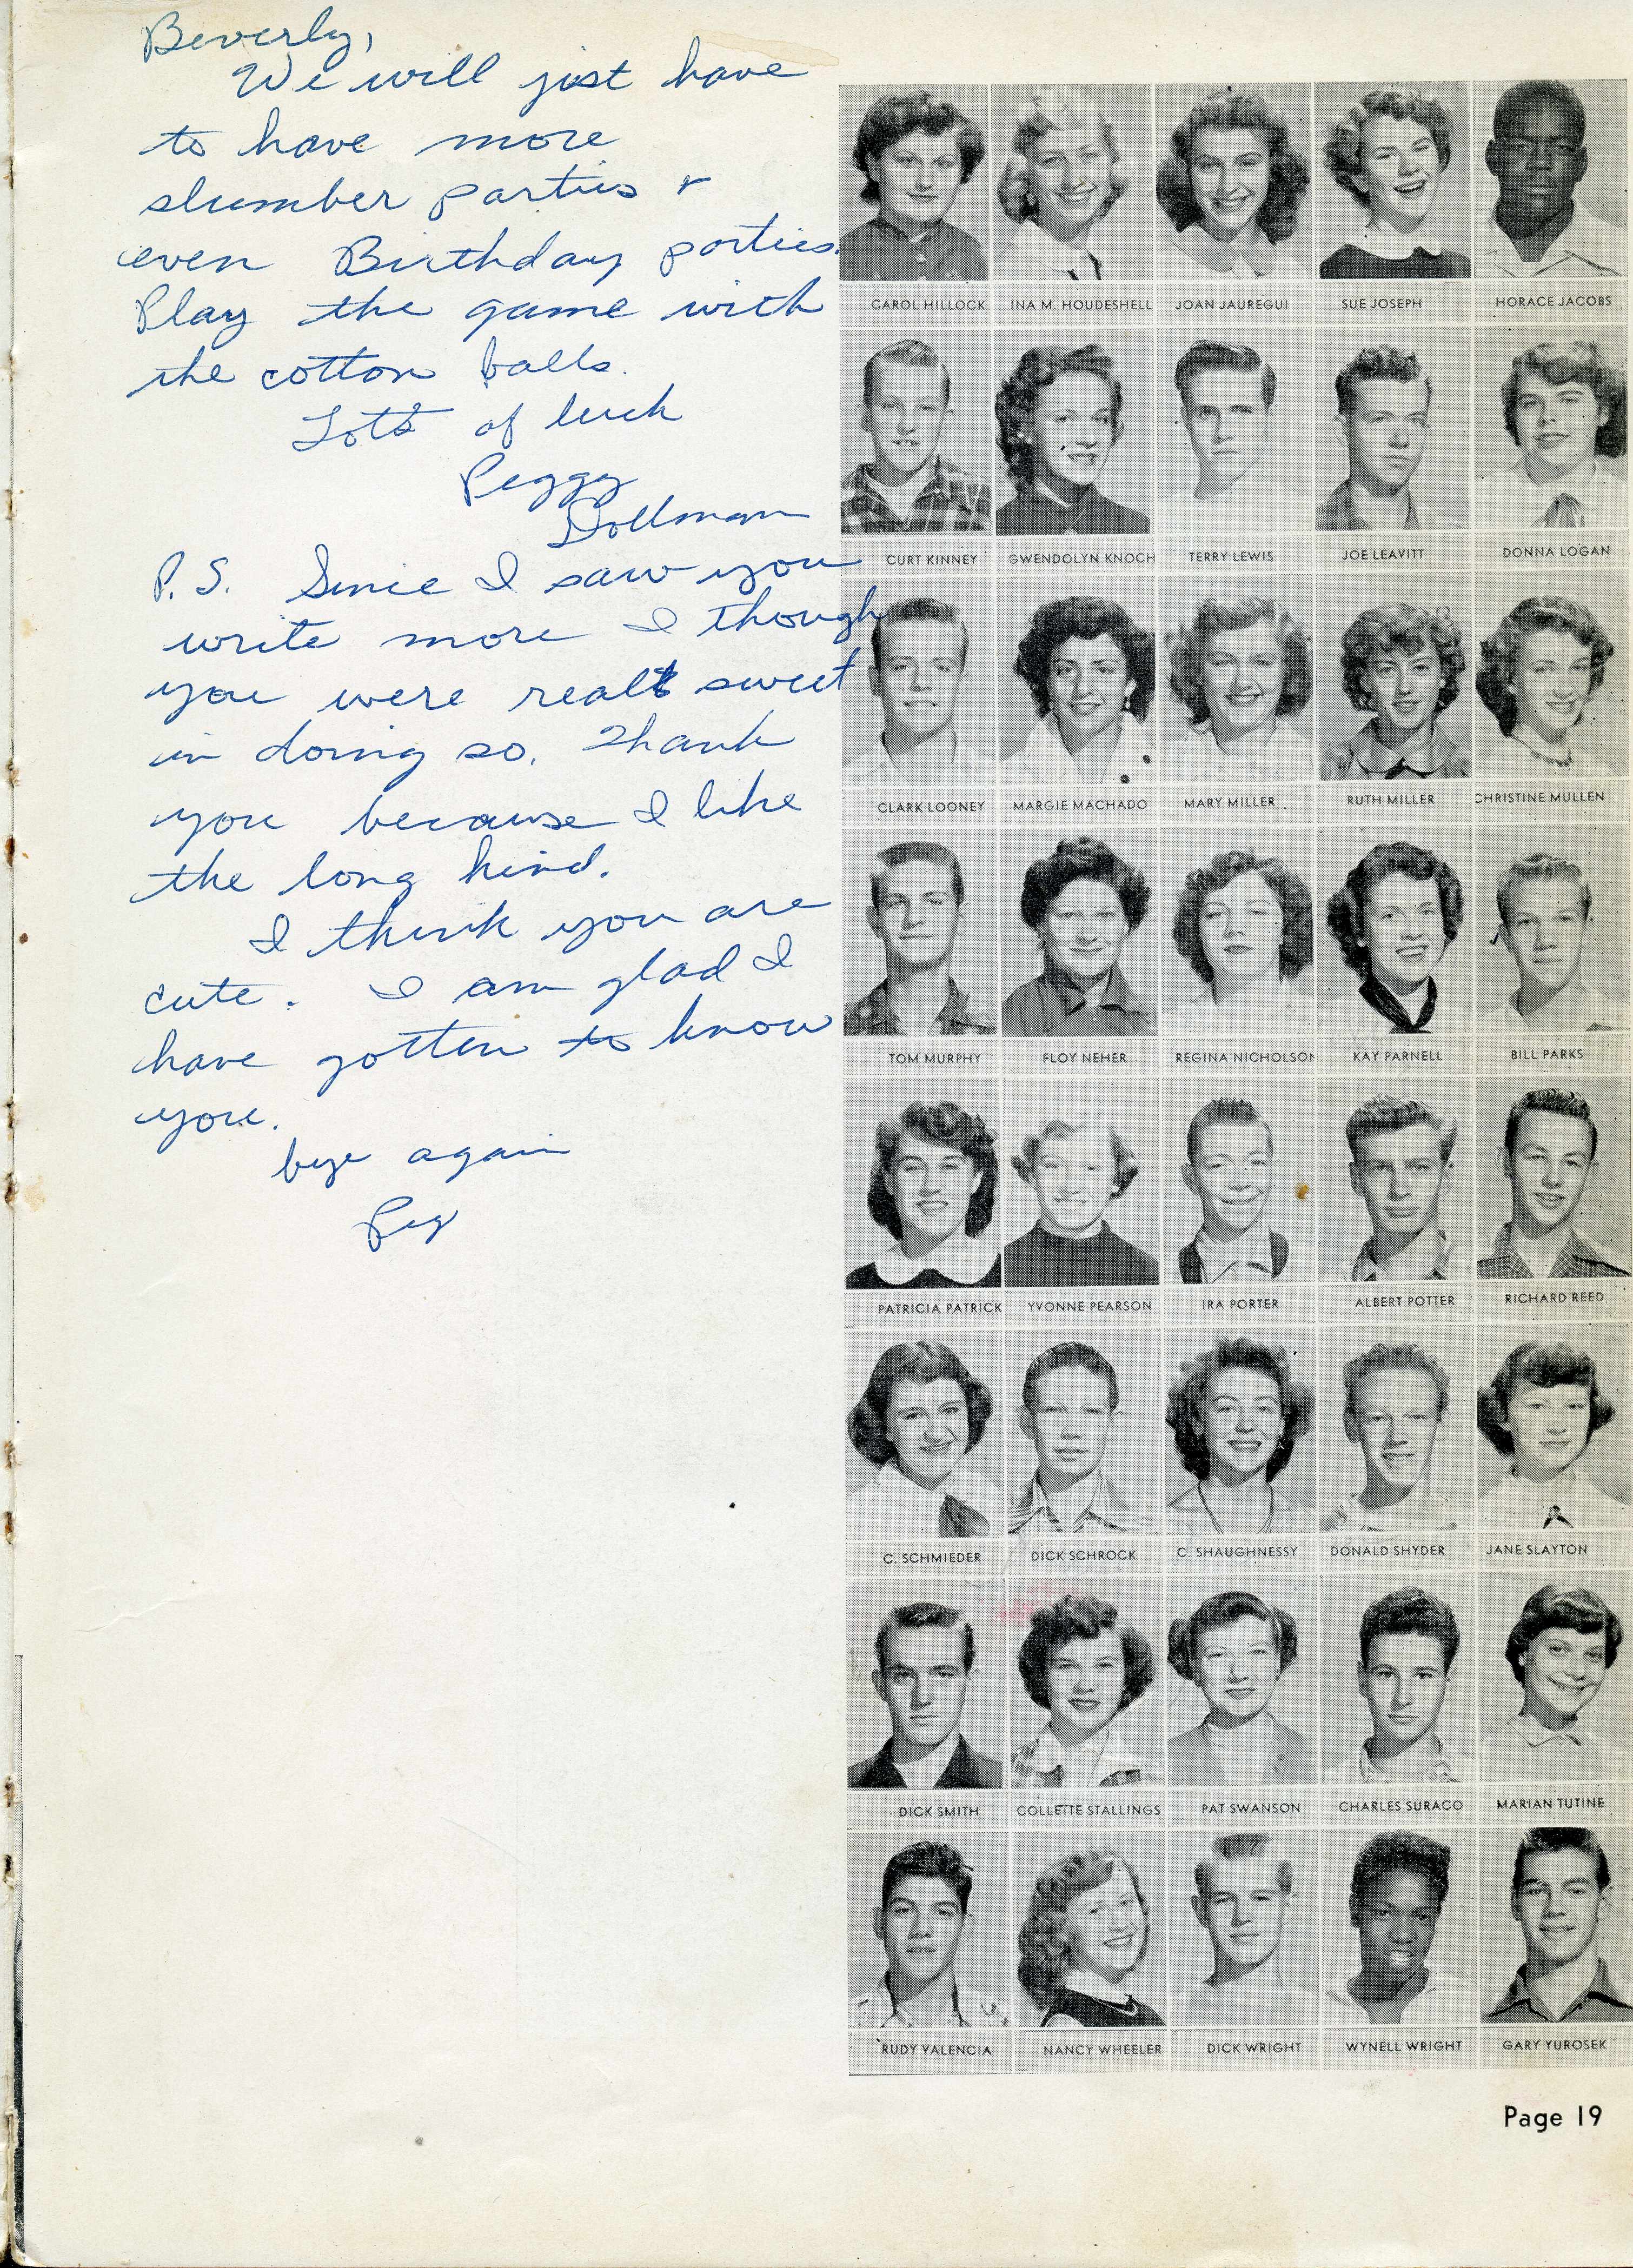 Beverly,
We will just have
to have more
slumber parties &
even Birthday parties.
Play the game with
the cotton balls.
Lots of luck
Peggy
Dollman
P.S. Since I saw you
write more I though
you were realt sweet
in doing so. Thank
you because I like
the long kind.
I think you are
cute. I am glad I
have gotten to know
you.
bye again
Peg
CAROL HILLOCK INA M. HOUDESHELL JOAN JAUREGUI SUE JOSEPH HORACE JACOBS
CURT KINNEY GWENDOLYN KNOCH TERRY LEWIS JOE LEAVITT DONNA LOGAN
CLARK LOONEY MARGIE MACHADO MARY MILLER RUTH MILLER CHRISTINE MULLEN
TOM MURPHY FLOY NEHER REGINA NICHOLSON KAY PARNELL BILL PARKS
PATRICIA PATRICK YVONNE PEARSON IRA PORTER ALBERT POTTER RICHARD REED
C. SCHMIEDER DICK SCHROCK C. SHAUGHNESSY DONALD SHYDER JANE SLAYTON
DICK SMITH COLLETTE STALLINGS PAT SWANSON CHARLES SURACO MARIAN TUTINE
RUDY VALENCIA NANCY WHEELER DICK WRIGHT WYNELL WRIGHT GARY YUROSEK
Page 19